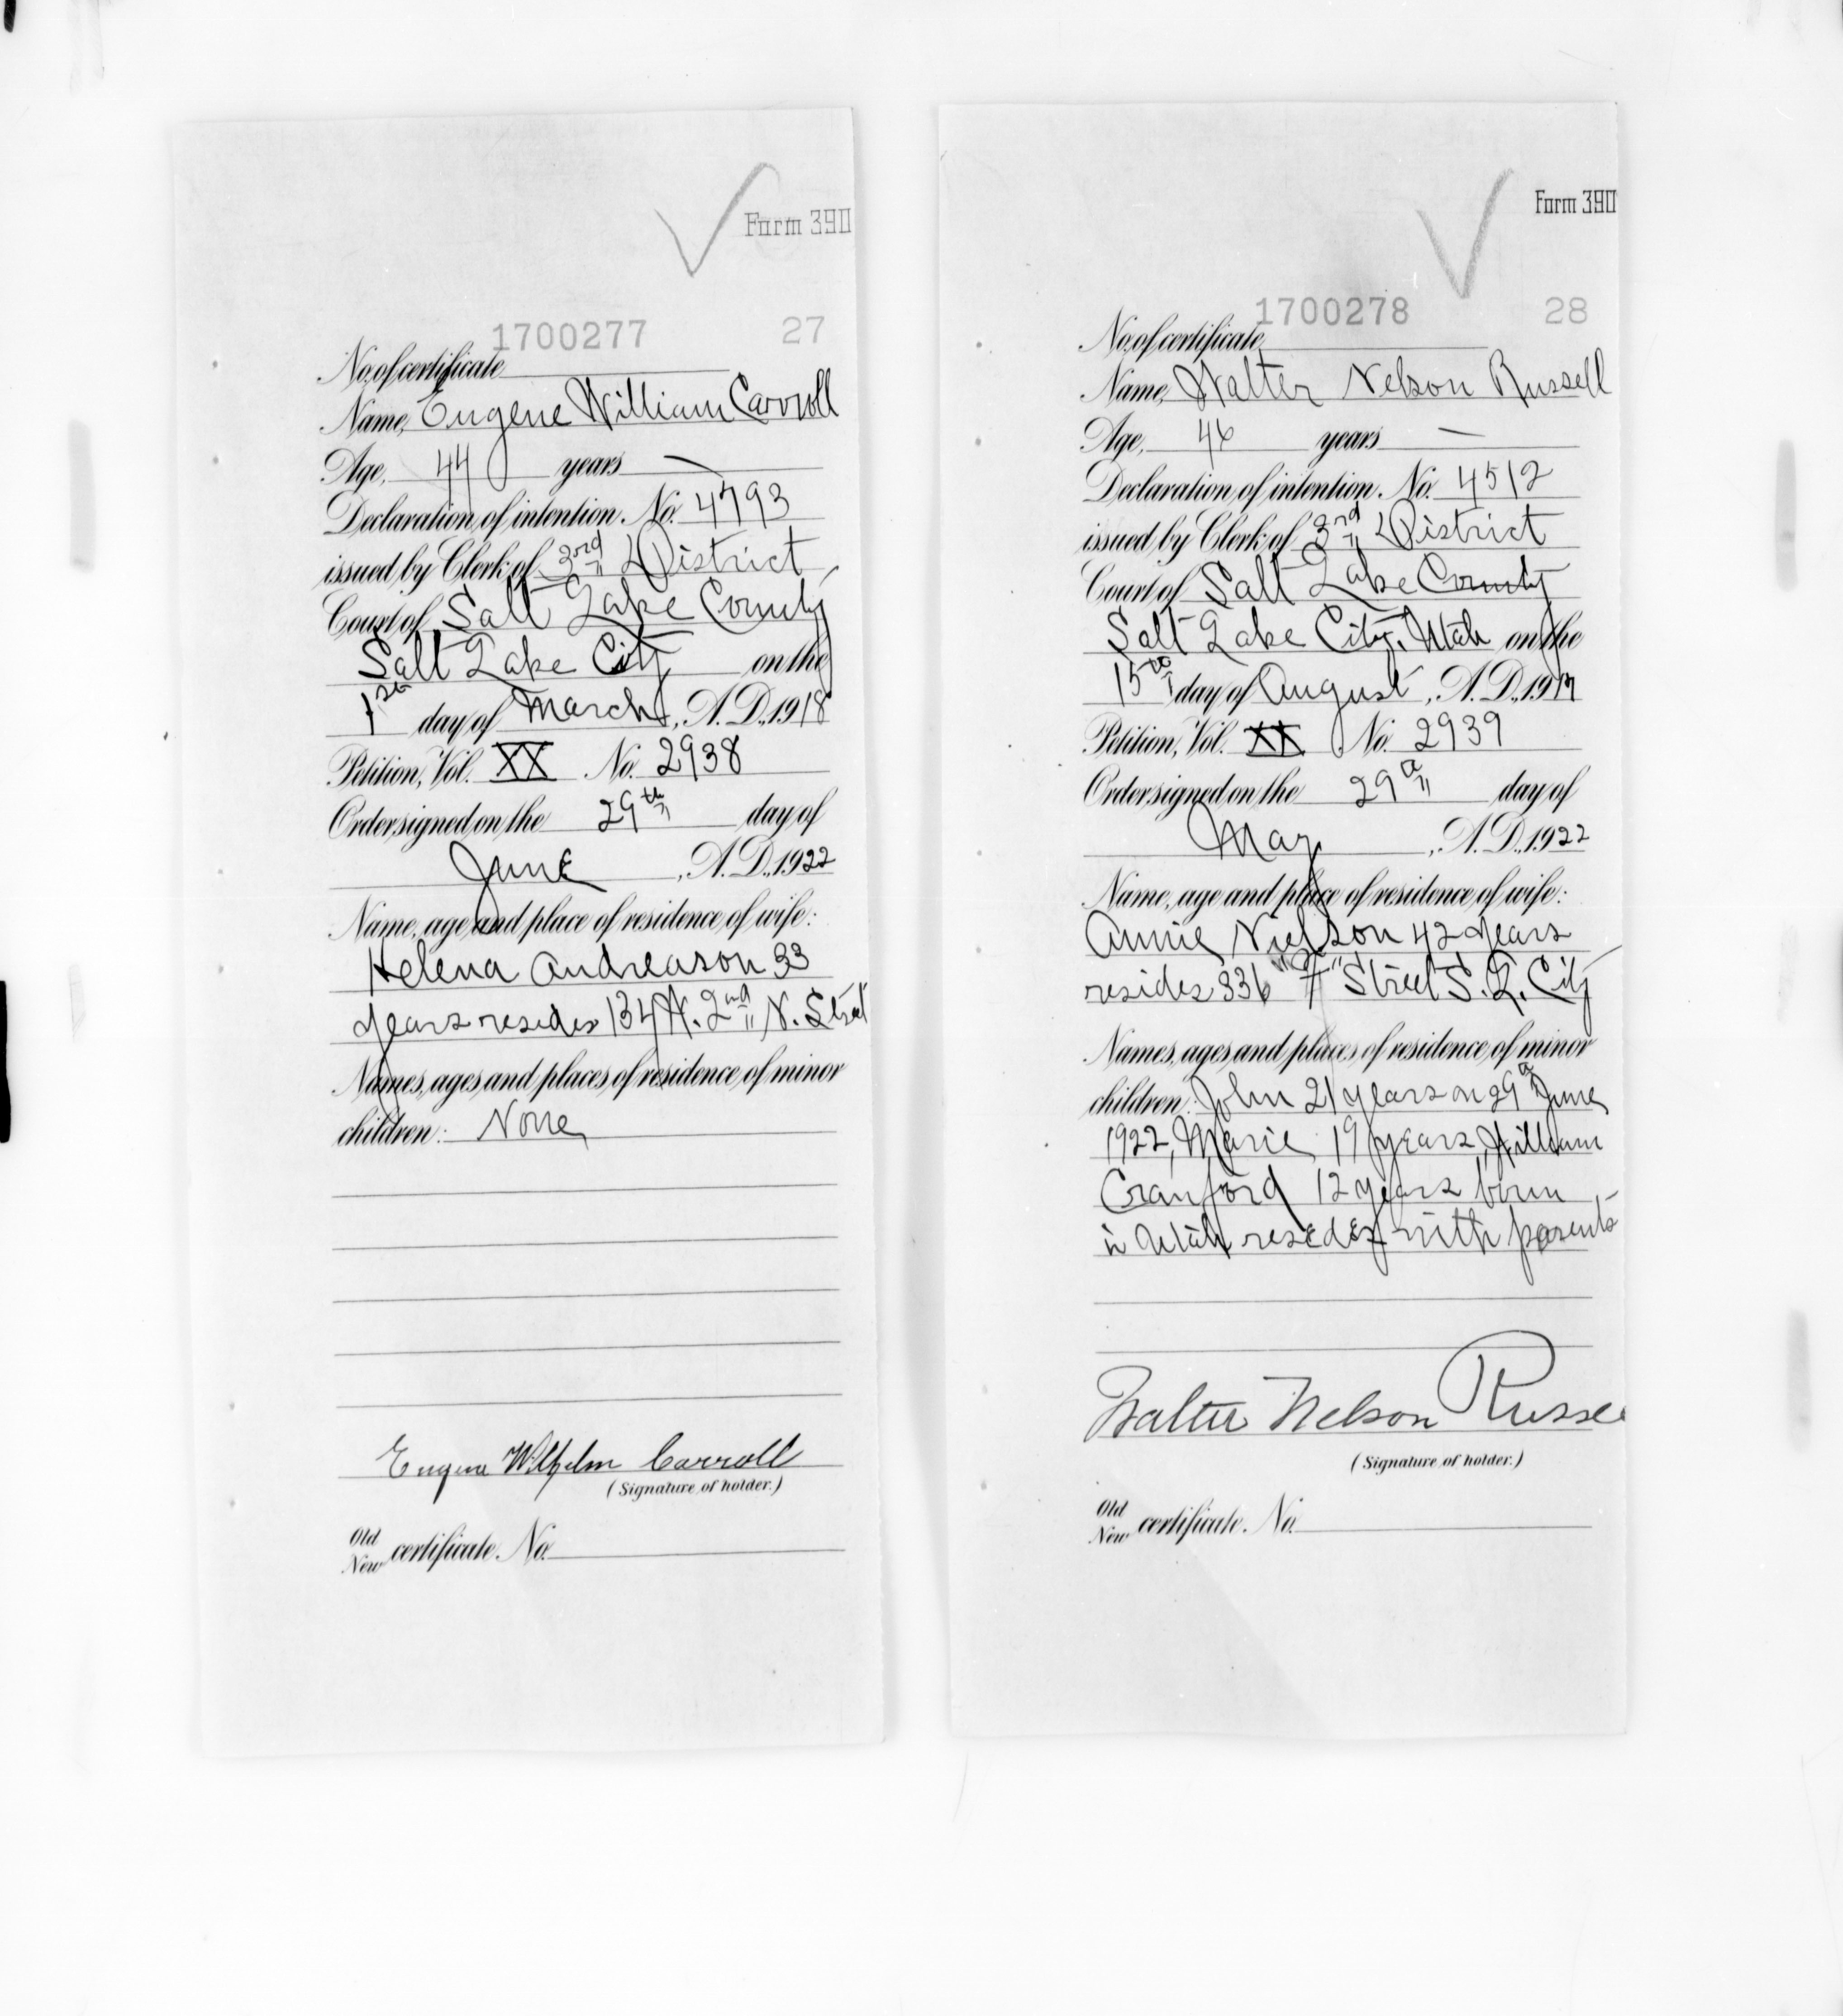 Form 390
1700277 27
No. of certificate
Name, Eugene William Carroll
Age, 44 years —
Declaration of intention No. 4793
issued by Clerk of 3rd District
Court of Salt Lake County
Salt Lake City on the
1st day of March, A.D. 1918
Petition, Vol. XX No. 2938
Order signed on the 29th day of
June, A.D. 1922
Name, age and place of residence of wife:
Helena Andreason 33
years resides 134 W. 2nd N. Street
Names, ages and places of residence of minor
children: None
Eugene Wilhelm Carroll
(Signature of holder.)
Old
New certificate No.
Form 390
1700278 28
No. of certificate
Name, Walter Nelson Russell
Age, 46 years —
Declaration of intention No. 4512
issued by Clerk of 3rd District
Court of Salt Lake County
Salt Lake City, Utah on the
15th day of August, A.D. 1917
Petition, Vol. XX No. 2939
Order signed on the 29th day of
May, A.D. 1922
Name, age and place of residence of wife:
Annie Nielson 42 years
resides 336 "F" Street S. L. City
Names, ages and places of residence of minor
children: John 21 years on 29th June
1922, Marie 19 years, William
Cranford 12 years born
in Utah resides with parents
Walter Nelson Russe
(Signature of holder.)
Old
New certificate No.